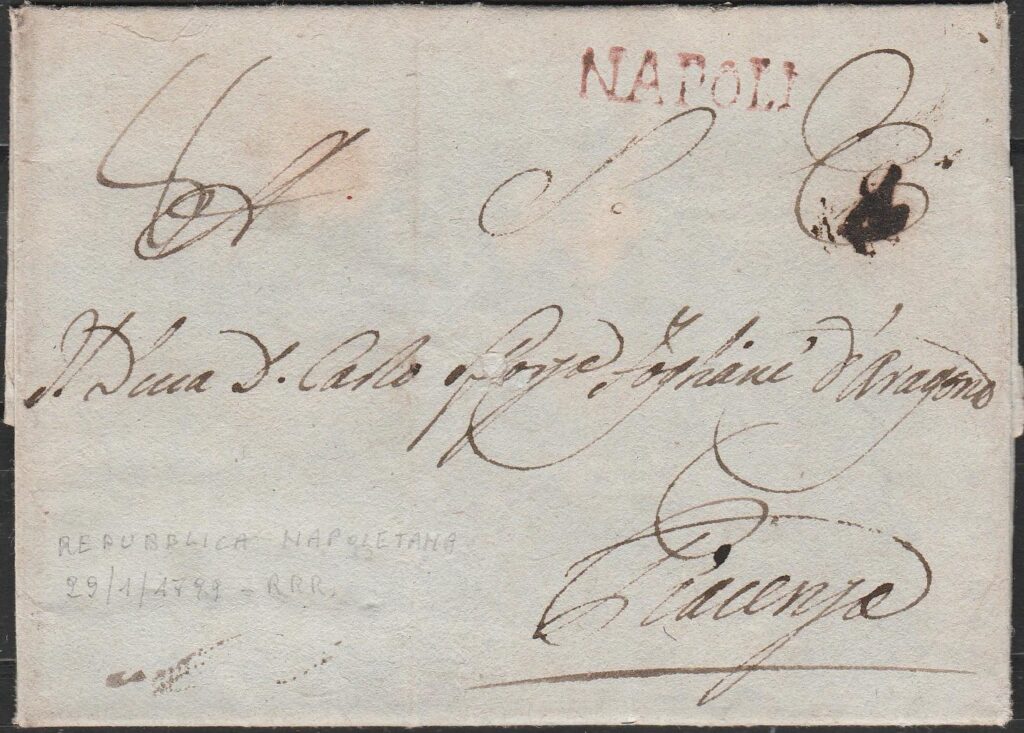 NAPOLI
A S. E.
Il Duca D. Carlo Sforza Fogliani d'Aragona
Piacenza
REPUBBLICA NAPOLETANA
29/1/1799 - RRR.